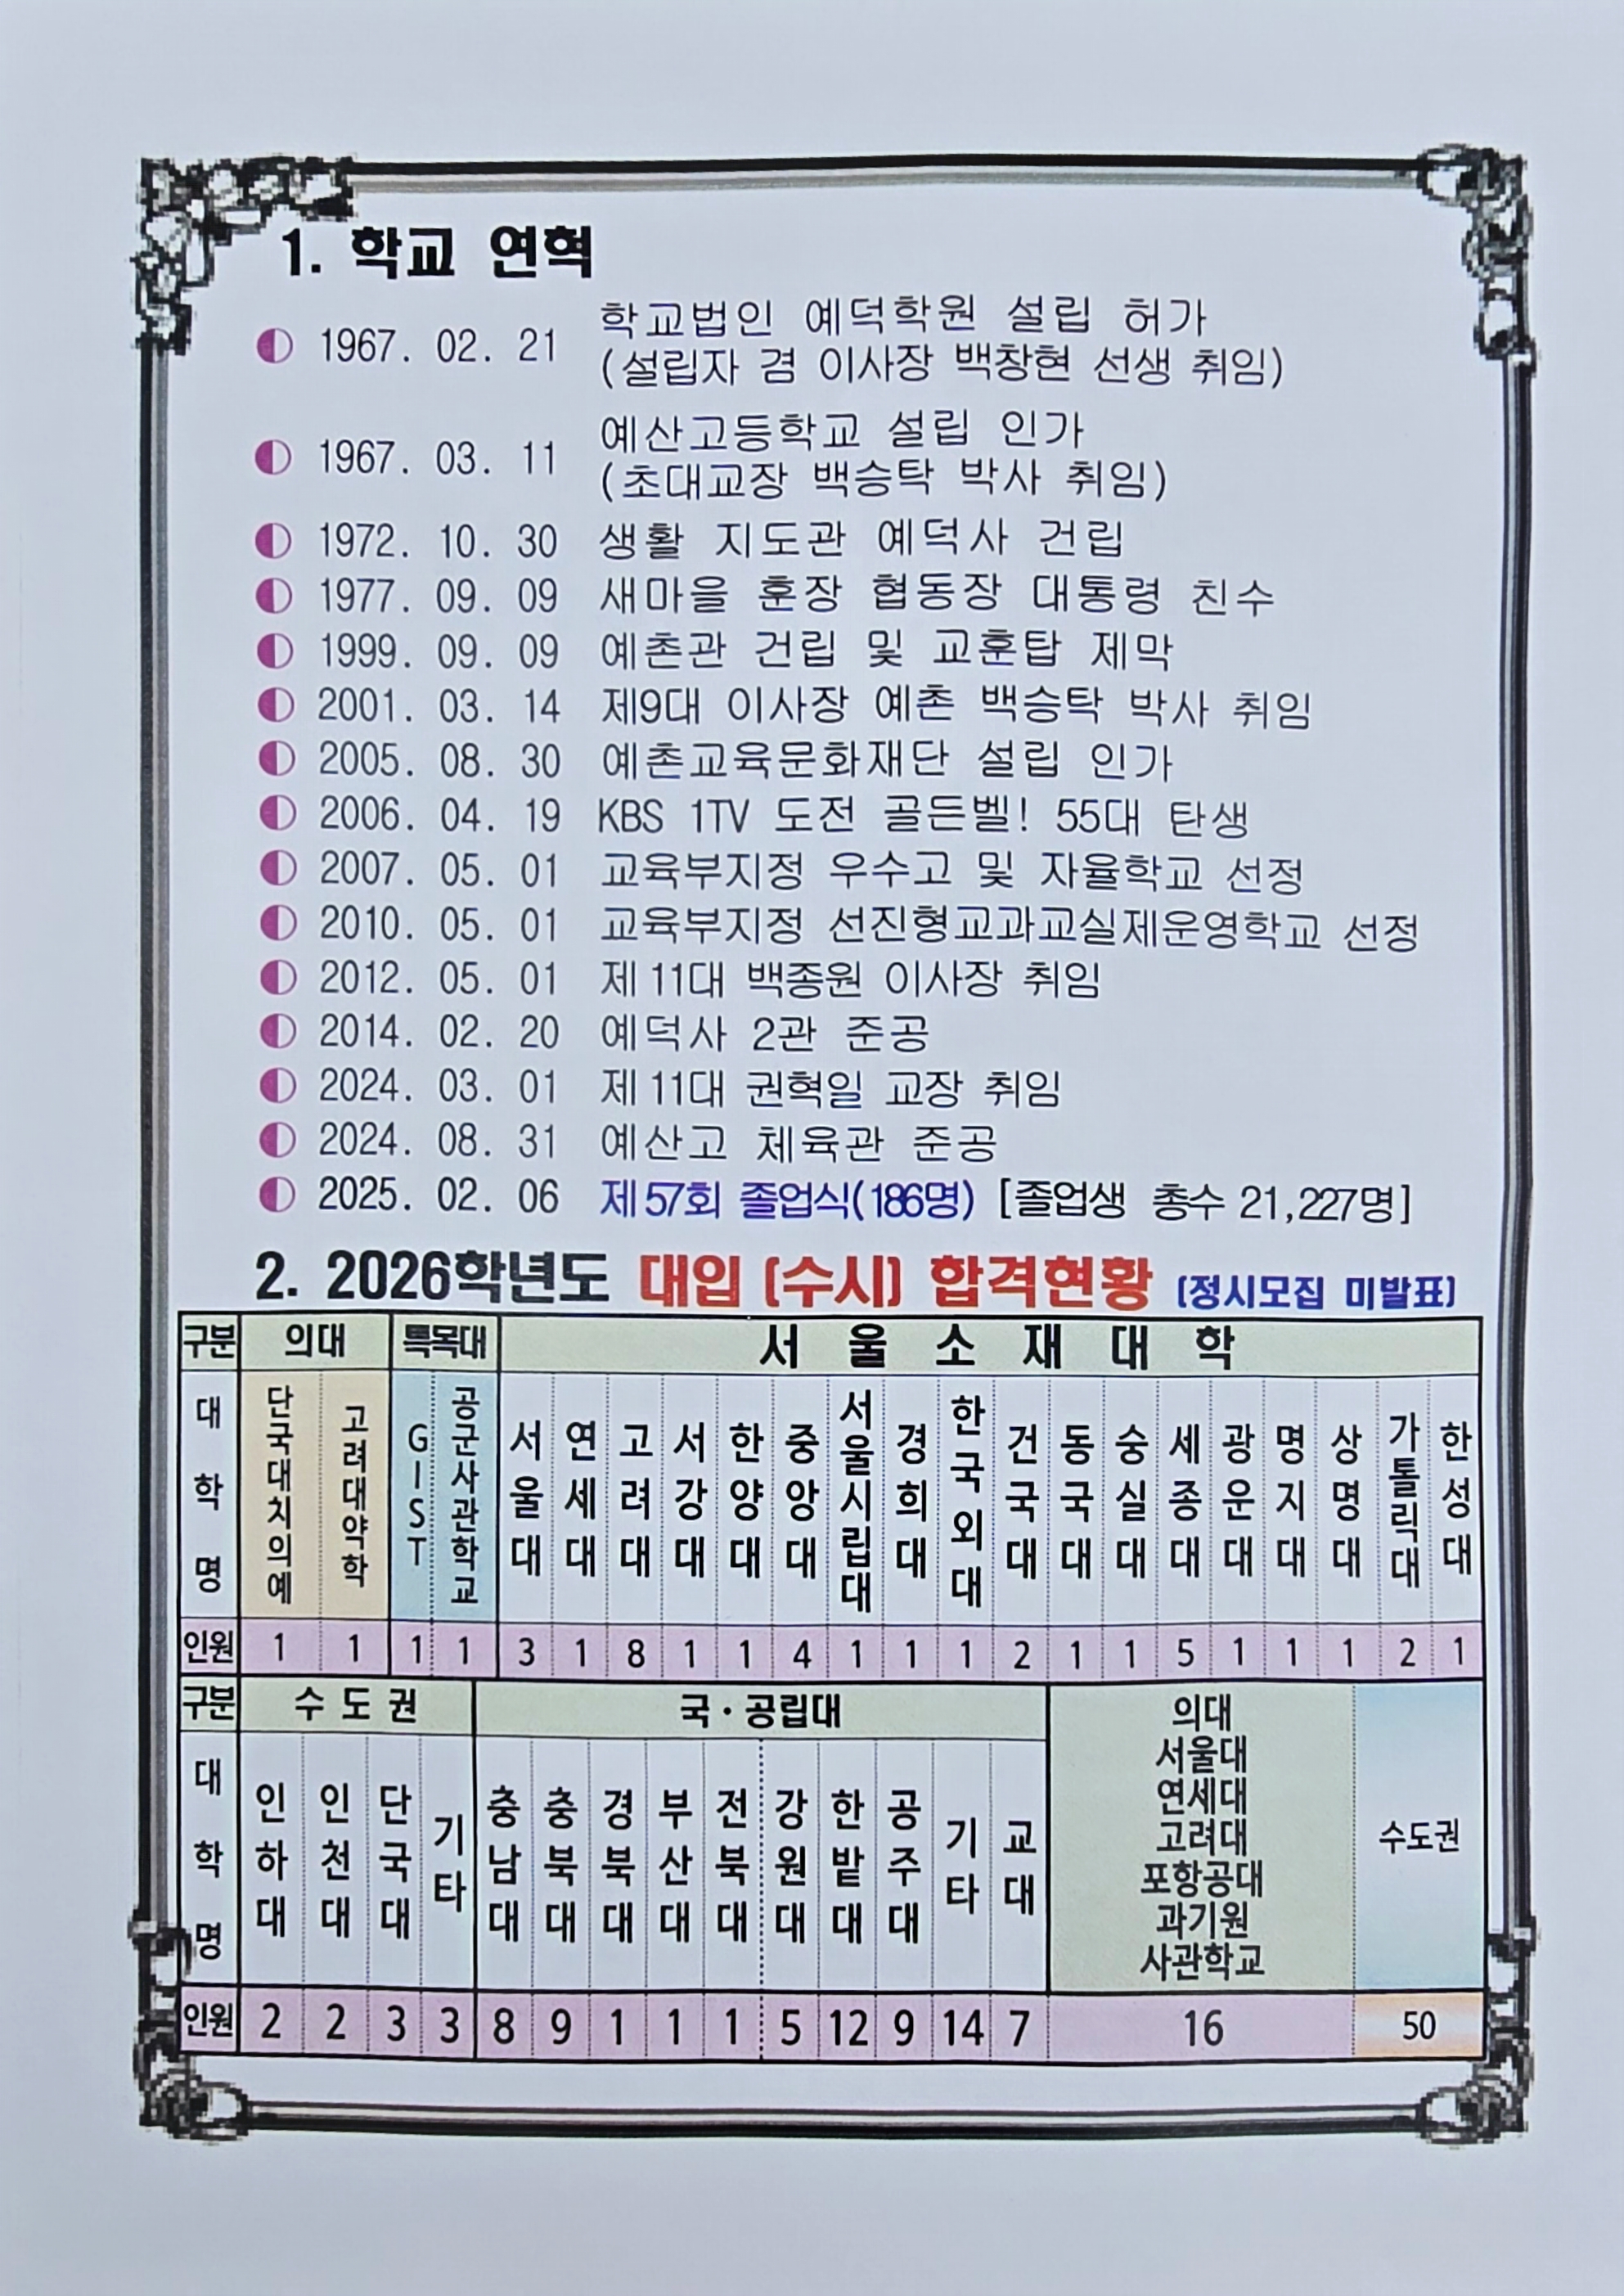 1. 학교 연혁
1967. 02. 21 학교법인 예덕학원 설립 허가
(설립자 겸 이사장 백창현 선생 취임)
1967. 03. 11 예산고등학교 설립 인가
(초대교장 백승탁 박사 취임)
1972. 10. 30 생활 지도관 예덕사 건립
1977. 09. 09 새마을 훈장 협동장 대통령 친수
1999. 09. 09 예촌관 건립 및 교훈탑 제막
2001. 03. 14 제9대 이사장 예촌 백승탁 박사 취임
2005. 08. 30 예촌교육문화재단 설립 인가
2006. 04. 19 KBS 1TV 도전 골든벨! 55대 탄생
2007. 05. 01 교육부지정 우수고 및 자율학교 선정
2010. 05. 01 교육부지정 선진형교과교실제운영학교 선정
2012. 05. 01 제11대 백종원 이사장 취임
2014. 02. 20 예덕사 2관 준공
2024. 03. 01 제11대 권혁일 교장 취임
2024. 08. 31 예산고 체육관 준공
2025. 02. 06 제57회 졸업식(186명) [졸업생 총수 21,227명]
2. 2026학년도 대입 (수시) 합격현황 (정시모집 미발표)
구분 의대 특목대 서울소재대학
대학명 단국대치의예 고려대약학 GIST 공군사관학교 서울대 연세대 고려대 서강대 한양대 중앙대 서울시립대 경희대 한국외대 건국대 동국대 숭실대 세종대 광운대 명지대 상명대 가톨릭대 한성대
인원 1 1 1 1 3 1 8 1 1 4 1 1 1 2 1 1 5 1 1 1 2 1
구분 수도권 국·공립대
대학명 인하대 인천대 단국대 기타 충남대 충북대 경북대 부산대 전북대 강원대 한밭대 공주대 기타 교대
의대
서울대
연세대
고려대
포항공대
과기원
사관학교
수도권
인원 2 2 3 3 8 9 1 1 1 5 12 9 14 7 16 50